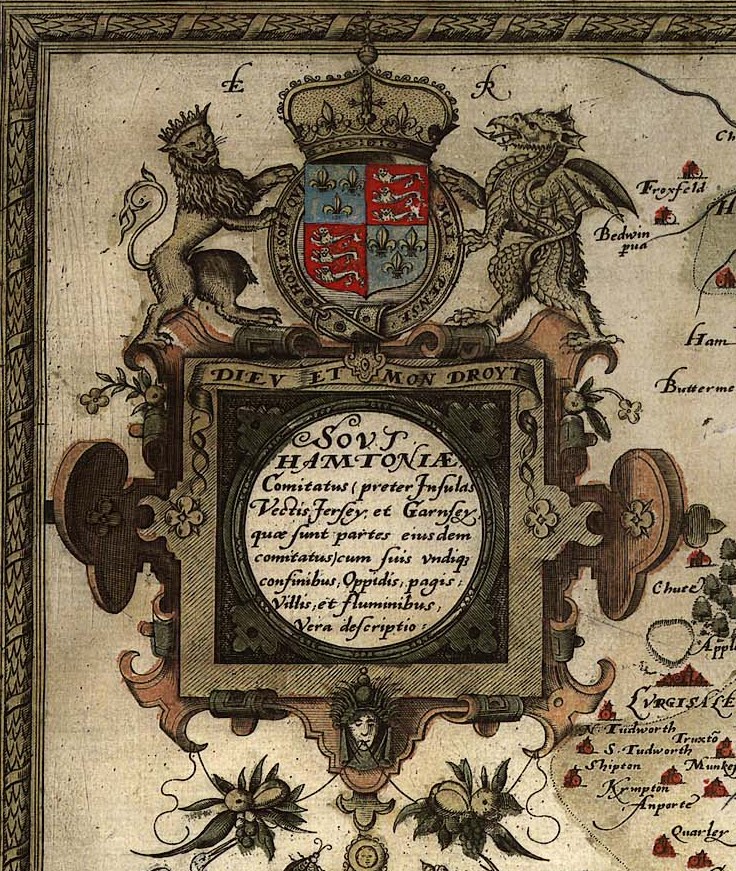 E R
HONI SOIT QVI MAL Y PENSE
DIEV ET MON DROYT
SOVT
HAMTONIÆ
Comitatus (preter Insulas
Vectis Jersey, et Garnsey,
quæ sunt partes eiusdem
comitatus) cum suis vndiq;
confinibus, Oppidis, pagis:
Villis, et fluminibus,
Vera descriptio:
Froxfeld
Bedwin
pua
Ham
Butterme
Chute
Appl
LVRGISALE
N. Tudworth
Truxtō
S. Tudworth
Shipton
Munkep
Kympton
Anporte
Quarley